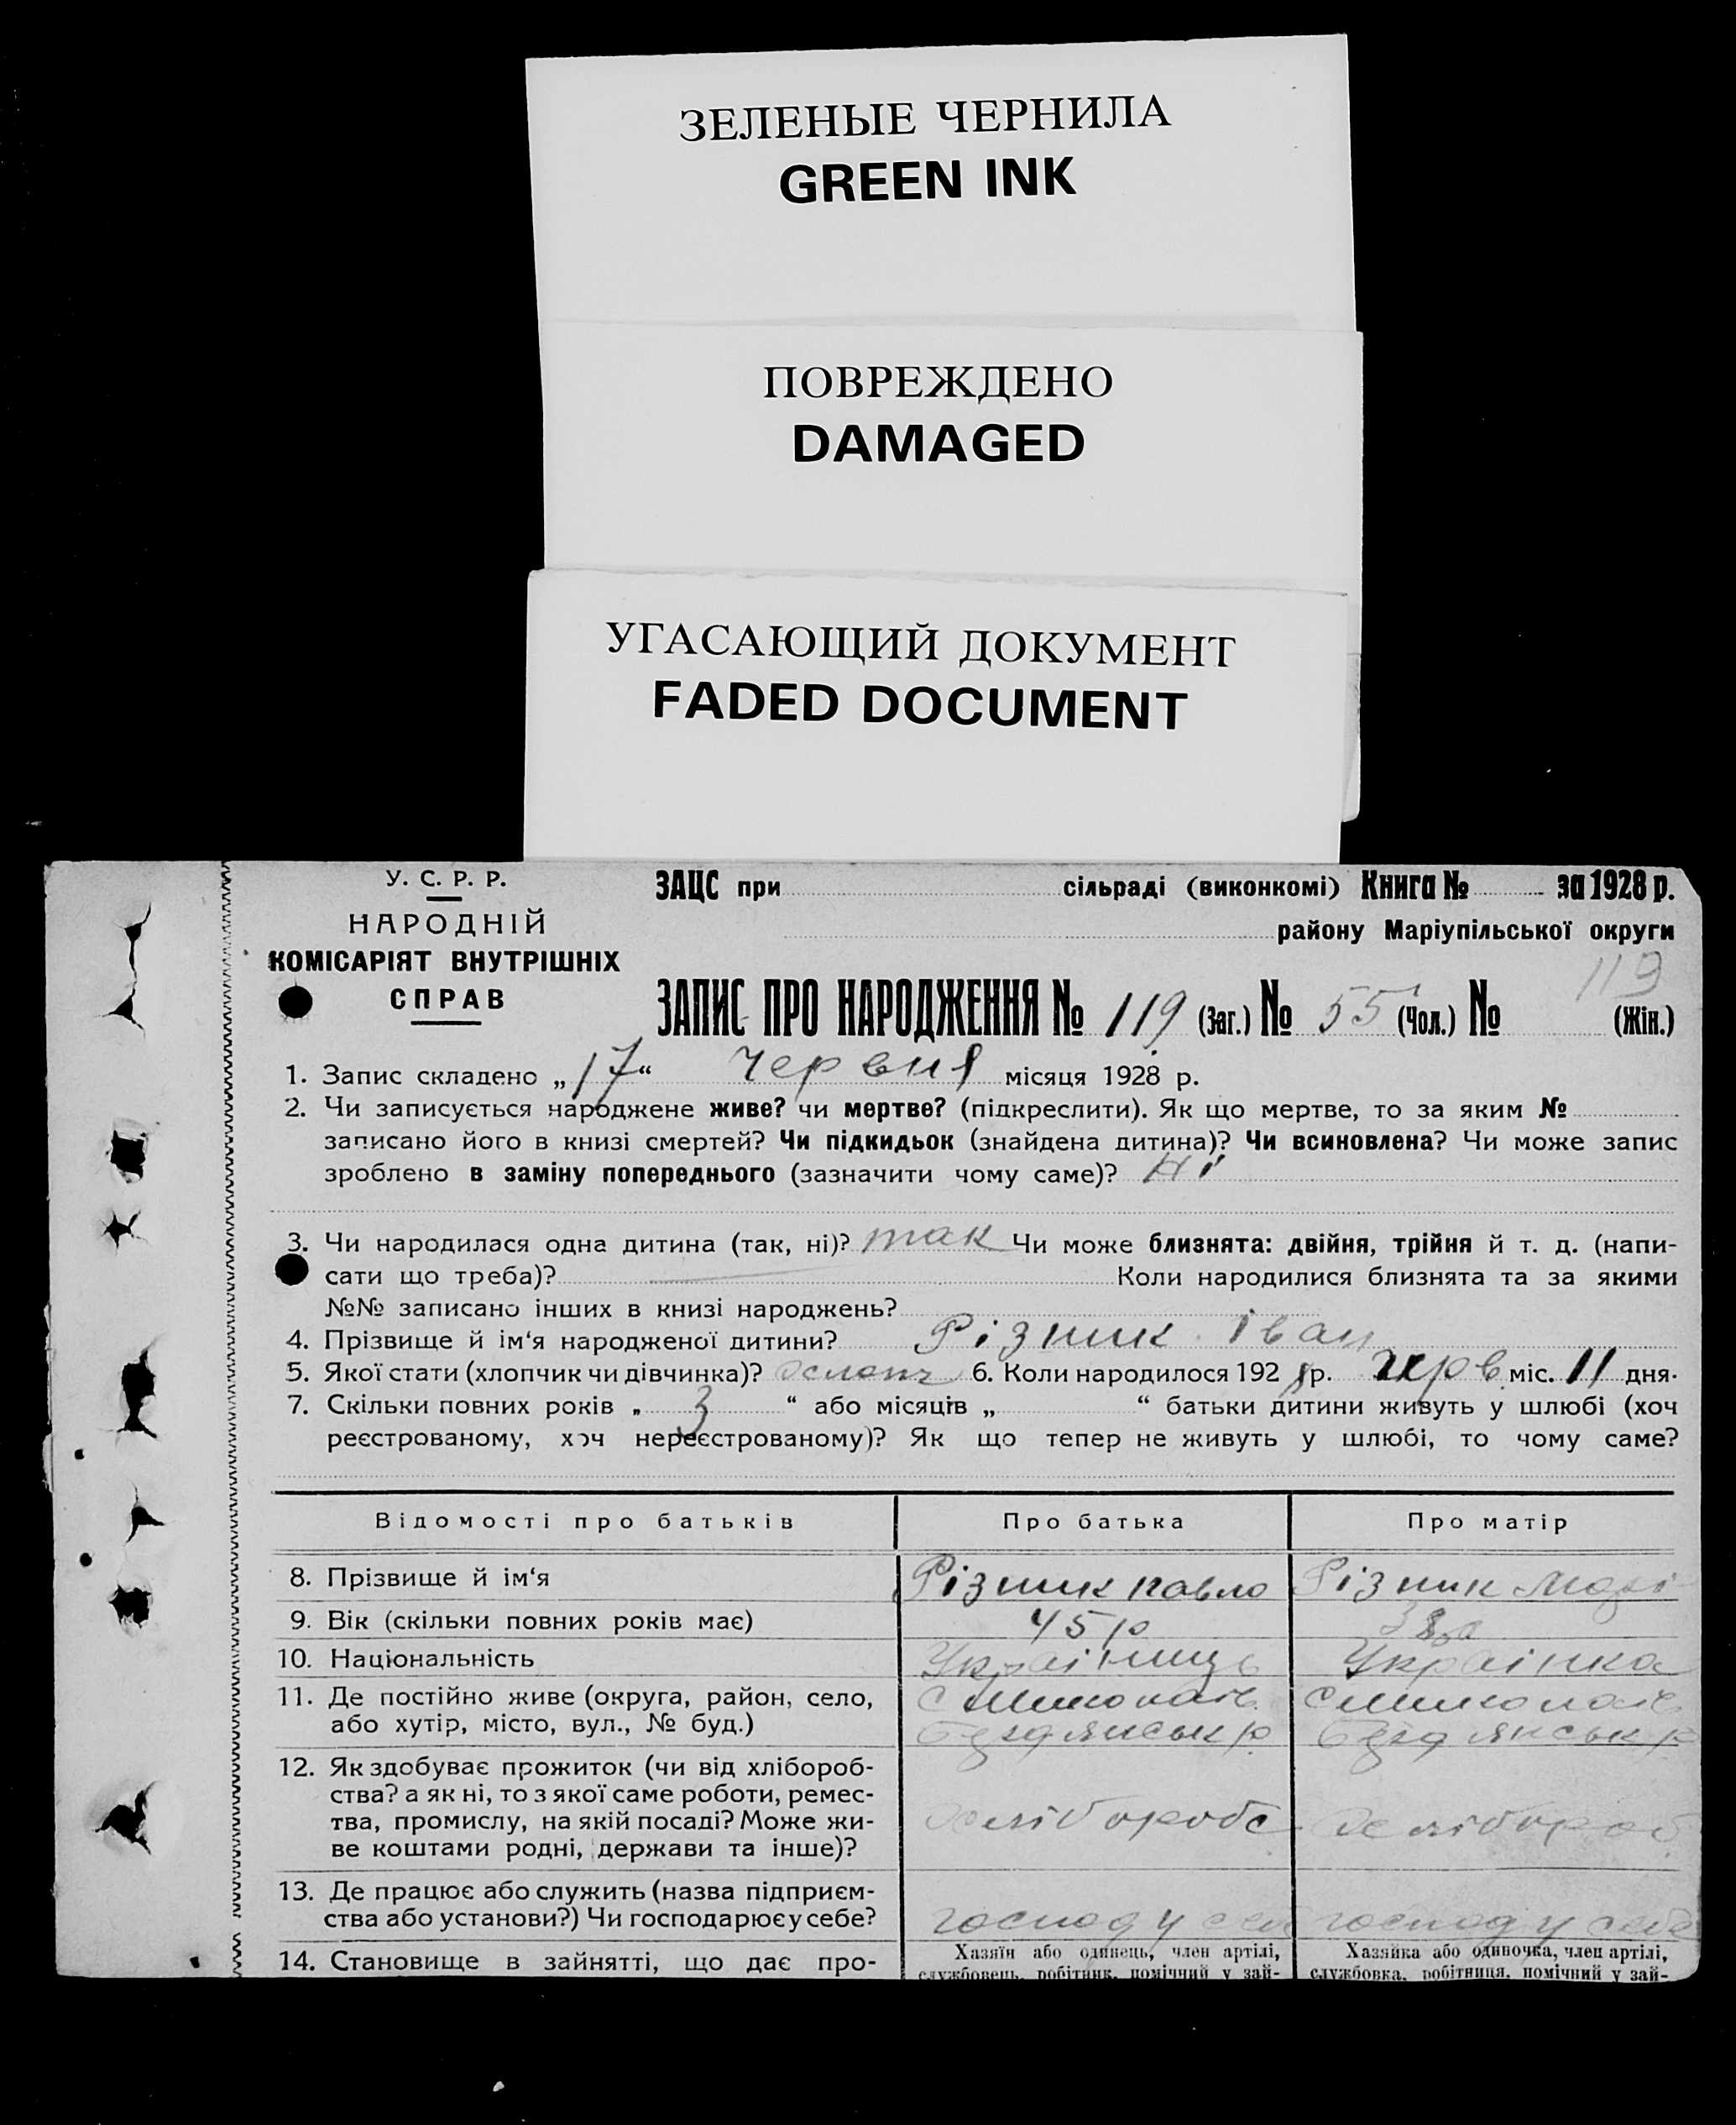 ЗЕЛЕНЫЕ ЧЕРНИЛА
GREEN INK
ПОВРЕЖДЕНО
DAMAGED
УГАСАЮЩИЙ ДОКУМЕНТ
FADED DOCUMENT
У. С. Р. Р.
НАРОДНІЙ
КОМІСАРІЯТ ВНУТРІШНІХ
СПРАВ
ЗАЦС при сільраді (виконкомі) Книга № за 1928 р.
району Маріупільської округи
119
ЗАПИС ПРО НАРОДЖЕННЯ № 119 (Заг.) № 55 (Чол.) № (Жін.)
1. Запис складено „17“ червня місяця 1928 р.
2. Чи записується народжене живе? чи мертве? (підкреслити). Як що мертве, то за яким №
записано його в книзі смертей? Чи підкидьок (знайдена дитина)? Чи всиновлена? Чи може запис
зроблено в заміну попереднього (зазначити чому саме)? Ні
3. Чи народилася одна дитина (так, ні)? так Чи може близнята: двійня, трійня й т. д. (напи-
сати що треба)? Коли народилися близнята та за якими
№№ записано інших в книзі народжень?
4. Прізвище й ім‘я народженої дитини? Різник Іван
5. Якої стати (хлопчик чи дівчинка)? хлопч 6. Коли народилося 1928 р. черв міс. 11 дня.
7. Скільки повних років „ 3 “ або місяців „ “ батьки дитини живуть у шлюбі (хоч
реєстрованому, хоч нереєстрованому)? Як що тепер не живуть у шлюбі, то чому саме?
Відомості про батьків Про батька Про матір
8. Прізвище й ім‘я Різник Павло Різник Марі
9. Вік (скільки повних років має) 45 р
10. Національність Українець Українка
11. Де постійно живе (округа, район, село,
або хутір, місто, вул., № буд.)
12. Як здобуває прожиток (чи від хлібороб-
ства? а як ні, то з якої саме роботи, ремес-
тва, промислу, на якій посаді? Може жи-
ве коштами родні, держави та інше)?
хлібороб хлібороб
13. Де працює або служить (назва підприєм-
ства або установи?) Чи господарює у себе?
господ у себе господ у себе
14. Становище в зайнятті, що дає про-
Хазяїн або одинець, член артілі,
службовець, робітник, помічний у зай-
Хазяйка або одиночка, член артілі,
службовка, робітниця, помічний у зай-